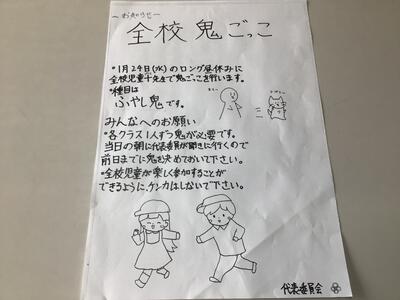 〜お知らせ〜
全校鬼ごっこ
•1月24日(水)のロング昼休みに
全校児童十先生で鬼ごっこを行います。
•種目は
ふやし鬼です。
みんなへのお願い
•各クラス1人ずつ鬼が必要です。
当日の朝に代表委員が聞きに行くので
前日までに鬼を決めておいて下さい。
•全校児童が楽しく参加することが
できるように、ケンカはしないで下さい。
代表委員会